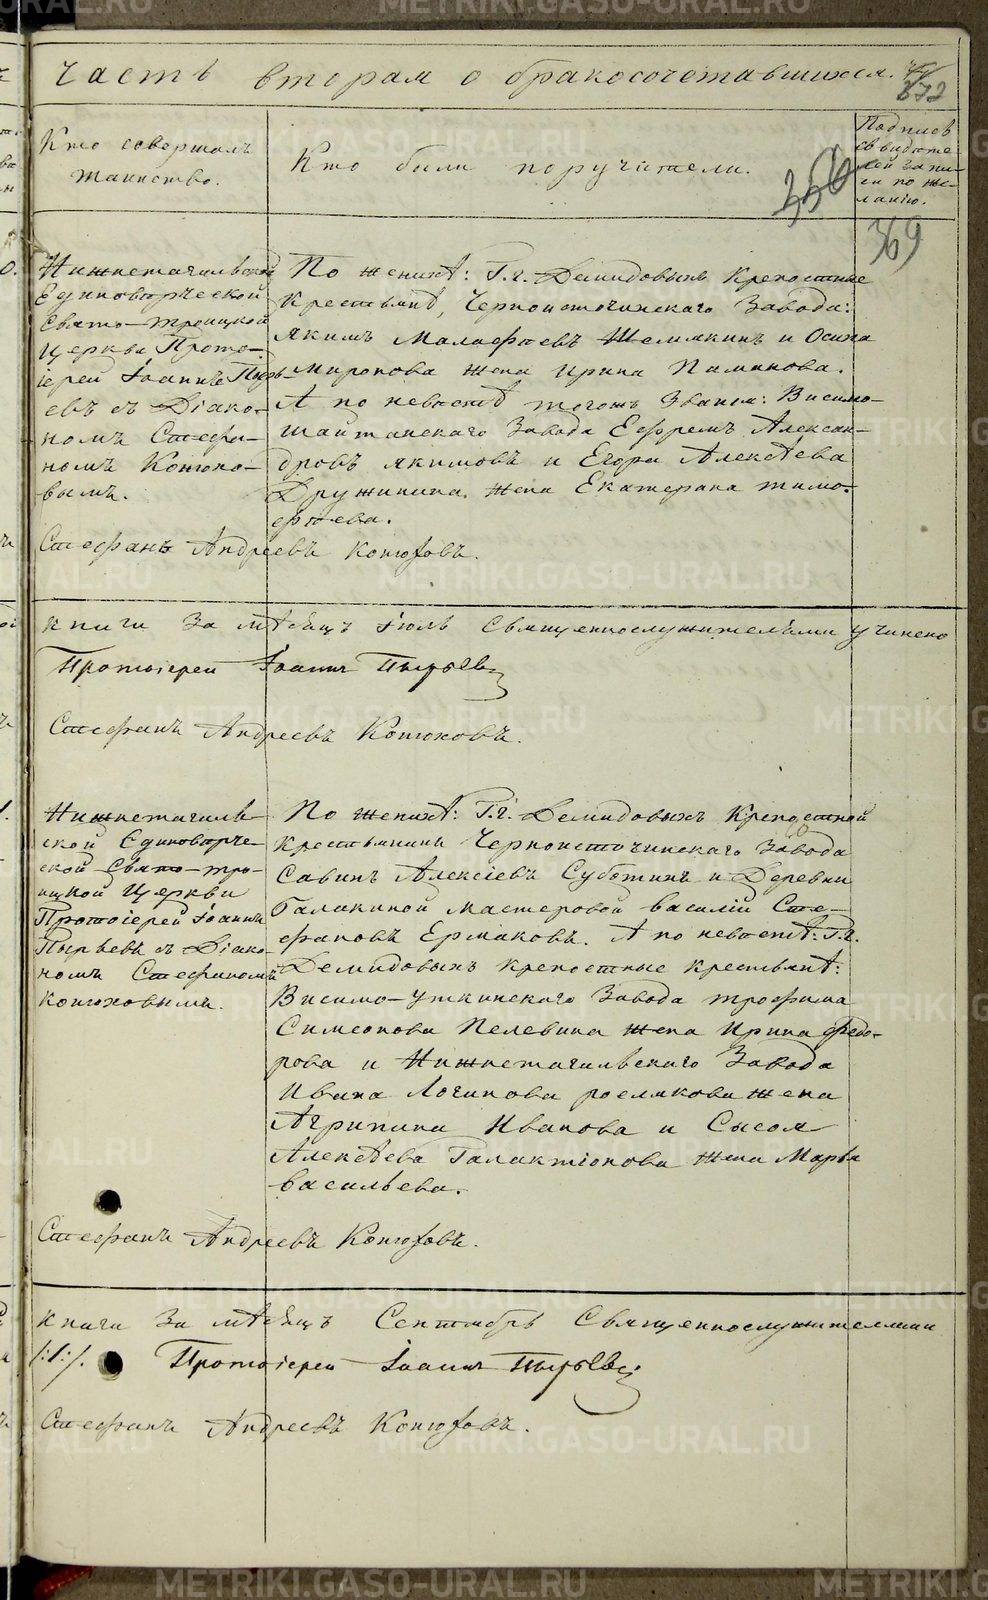 Часть вторая о бракосочетавшихся.
372
Кто совершалъ
таинство.
Кто были поручители.
Подписъ
свидѣте-
лей запи-
си по же-
ланію.
356
369
Нижнетагильской
Единовѣрческой
Свято-Троицкой
Церкви Прото-
іерей Іоаннъ Пырь-
евъ съ Діако-
номъ Стефа-
номъ Конюхо-
вымъ.
По женихѣ: Г.г. Демидовыхъ Крепостные
Крестьянѣ, Черноисточинскаго Завода:
Якимъ Малафѣевъ Шелимкинъ и Осипа
Миронова жена Ирина Пиминова.
А по невѣстѣ тогожъ Званія: Висимо-
шайтанскаго Завода Ефремъ Алексан-
дровъ Якимовъ и Егора Алексѣева
Дружинина жена Екатерина Тимо-
фѣева.
Стефанъ Андреевъ Конюховъ.
книги За мѣсяцъ Іюль Священнослужителями учинено
Протоіерей Іоаннъ Пырьевъ
Стефанъ Андреевъ Конюховъ.
Нижнетагиль-
ской Единовѣрче-
ской Свято-Тро-
ицкой Церкви
Протоіерей Іоаннъ
Пырьевъ съ Діако-
номъ Стефаномъ
Конюховымъ.
По женихѣ: Г.г. Демидовыхъ Крепостной
Крестьянинъ Черноисточинскаго Завода
Савинъ Алексіевъ Суботинъ и Деревни
Галашиной мастеровой Василій Сте-
фановъ Ермаковъ. А по невѣстѣ: Г.г.
Демидовыхъ крепостные крестьянѣ:
Висимо-Уткинскаго Завода Трофима
Симеонова Пелевина жена Ирина Федо-
рова и Нижнетагильскаго Завода
Ивана Логинова Рослякова жена
Агрипина Иванова и Сысоя
Алексѣева Галактіонова жена Марѳа
Васильева.
Стефанъ Андреевъ Конюховъ.
книги За мѣсяцъ Сентябрь Священнослужителями
Протоіерей Іоаннъ Пырьевъ
Стефанъ Андреевъ Конюховъ.
METRIKI.GASO-URAL.RU